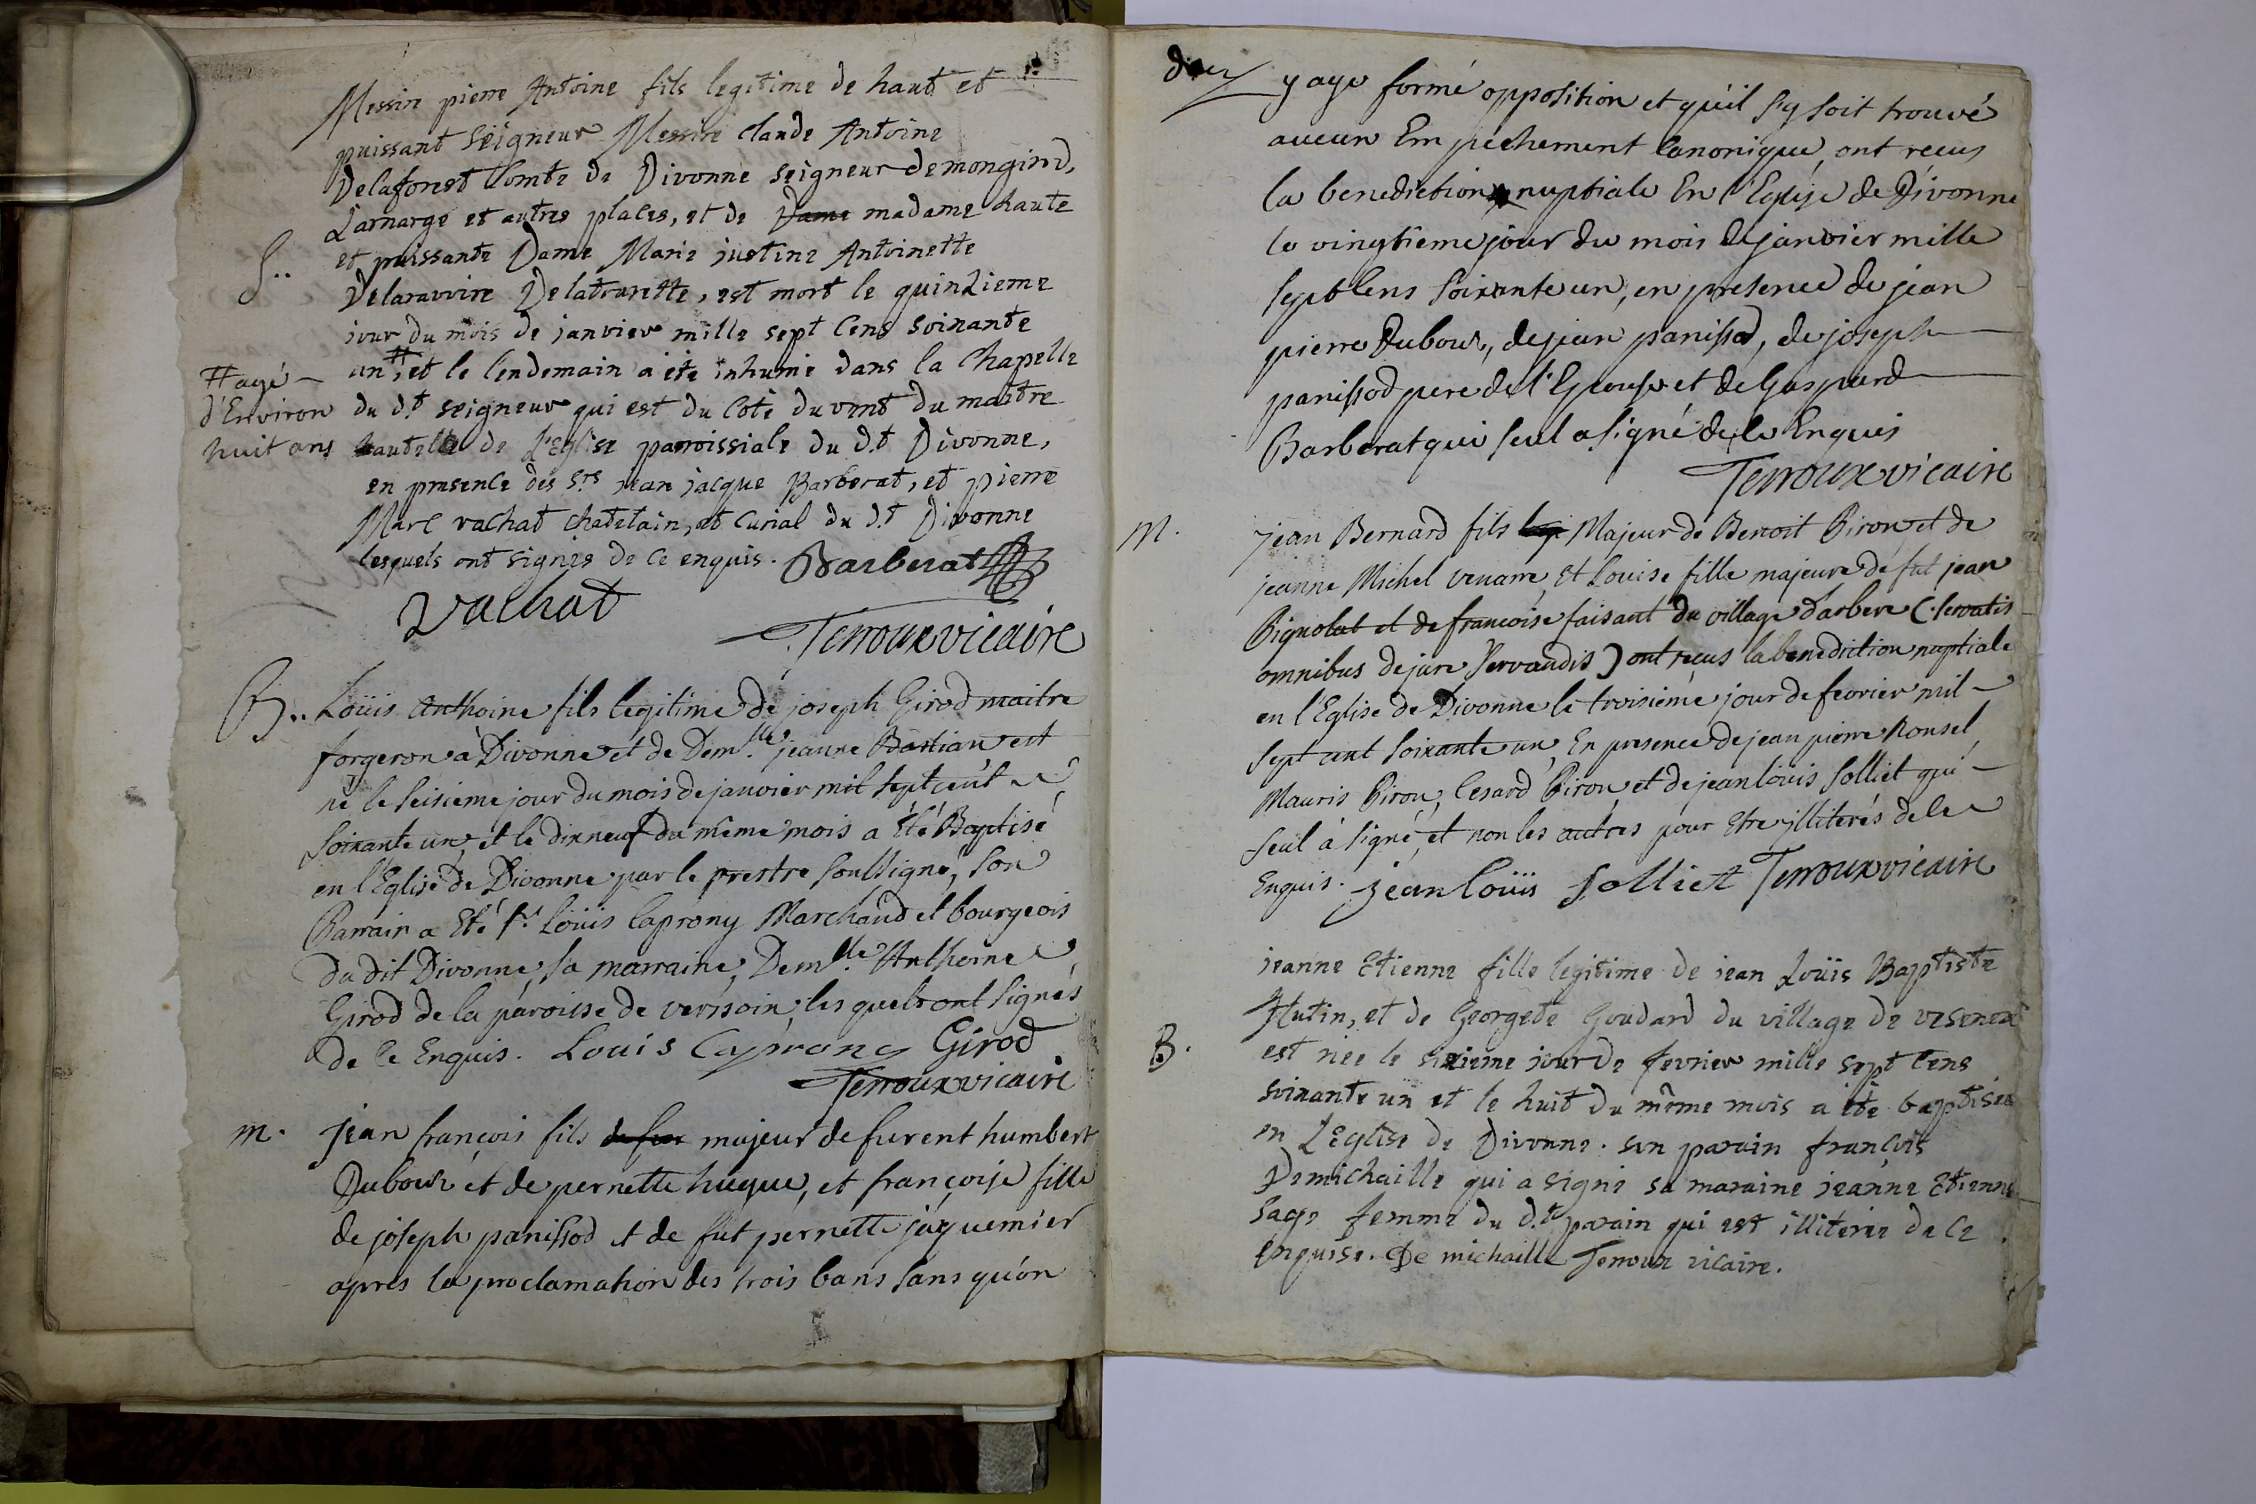 Messire pierre Antoine fils legitime de haut et
puissant seigneur Messire claude Antoine
Delaforest Comte de Divonne seigneur de mongirod,
Larnarge et autres places, et de Dame madame haute
S..
et puissante Dame Marie justine Antoinette
Delaravoire Delatourette, est mort le quinzieme
jour du mois de janvier mille sept Cens soixante
un #, et le lendemain a été inhumé dans la Chapelle
# agé
d'Environ
huit ans
du d.t seigneur qui est du Coté du vent du maitre
hautel de L'Eglise parroissiale du d.t Divonne,
en presence des S.rs jean jacque Barberat, et pierre
Marc vachat chatelain, et Curial du d.t Divonne
lesquels ont signés de ce enquis. Barberat
Vachat
Terroux vicaire
B.. Loüis Anthoine fils legitime de joseph Girod maitre
forgeron à Divonne et de Dem.lle jeanne Bastian est
né le seisieme jour du mois de janvier mil sept cent
soixante un, et le dixneuf du même mois a Eté Baptisé
en l'Eglise de Divonne par le prestre soussigné, son
Parrain a Eté s.r Loüis Caprony Marchand et bourgeois
du dit Divonne, sa marraine, Dem.lle Anthoine
Girod de la paroisse de versoin, les quels ont signés
de ce Enquis. Louis Caprony Girod
Terroux vicaire
m. jean françois fils majeur de furent humbert
Dubour et de pernette hugue, et françoise fille
de joseph panissod et de fut pernette jaquemier
apres la proclamation des trois bans sans qu'on
dix
y aye formé opposition et qu'il s'y soit trouvé
aucun Empéchement Canonique, ont recus
la benediction nuptiale En l'Eglise de Divonne
le vingtieme jour du mois de janvier mille
sept Cens soixante un, en presence de jean
pierre Dubour, de jean panissod, de joseph
panissod pere de l'Epouse et de Gaspard
Barberat qui seul a signé de ce Enquis
Terroux vicaire
M. jean Bernard fils Majeur de Benoit Piron et de
jeanne Michel venarre, et Louise fille majeure de fut jean
Pignolat et de francoise faisant du village d'arbere (servatis
omnibus de jure servandis) ont reçus la benediction nuptiale
en l'Eglise de Divonne le troisieme jour de fevrier mil
sept cent soixante un, En presence de jean pierre Ronsel,
Mauris Piron, Cesard Piron et de jean loüis Solliet qui
seul à signé, et non les autres pour Etre illiterés de ce
Enquis. jean loüis Solliet Terroux vicaire
jeanne Etienne fille legitime de jean Loüis Baptiste
Hutin, et de Georgete Goudard du village de vesenex
B.
est née le sixieme jour de fevrier mille sept Cens
soixante un et le huit du même mois a été baptisée
en L'Eglise de Divonne. son parain françois
Demichaille qui a signé sa maraine jeanne Etienne
Sage femme du d.t parain qui est illiterée de ce
enquise. De michaille Terroux vicaire.